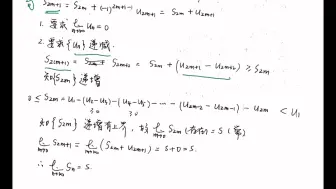 S₂ₘ₊₁ = S₂ₘ + (-1)²ᵐ⁺¹⁻¹ u₂ₘ₊₁ = S₂ₘ + u₂ₘ₊₁
1. 要求 lim uₙ = 0
2. 要求 {uₙ} 递减.
S₂₍ₘ₊₁₎ = S₂ₘ₊₂ = S₂ₘ + (u₂ₘ₊₁ - u₂ₘ₊₂) ≥ S₂ₘ
知 {S₂ₘ} 递增
0 ≤ S₂ₘ = u₁ - (u₂ - u₃) - (u₄ - u₅) - ⋯ - (u₂ₘ₋₂ - u₂ₘ₋₁) - u₂ₘ < u₁
≥0 ≥0
知 {S₂ₘ} 递增有上界, 故 lim S₂ₘ (存在) = S
lim S₂ₘ₊₁ = lim (S₂ₘ + u₂ₘ₊₁) = S + 0 = S.
∴ lim Sₙ = S.